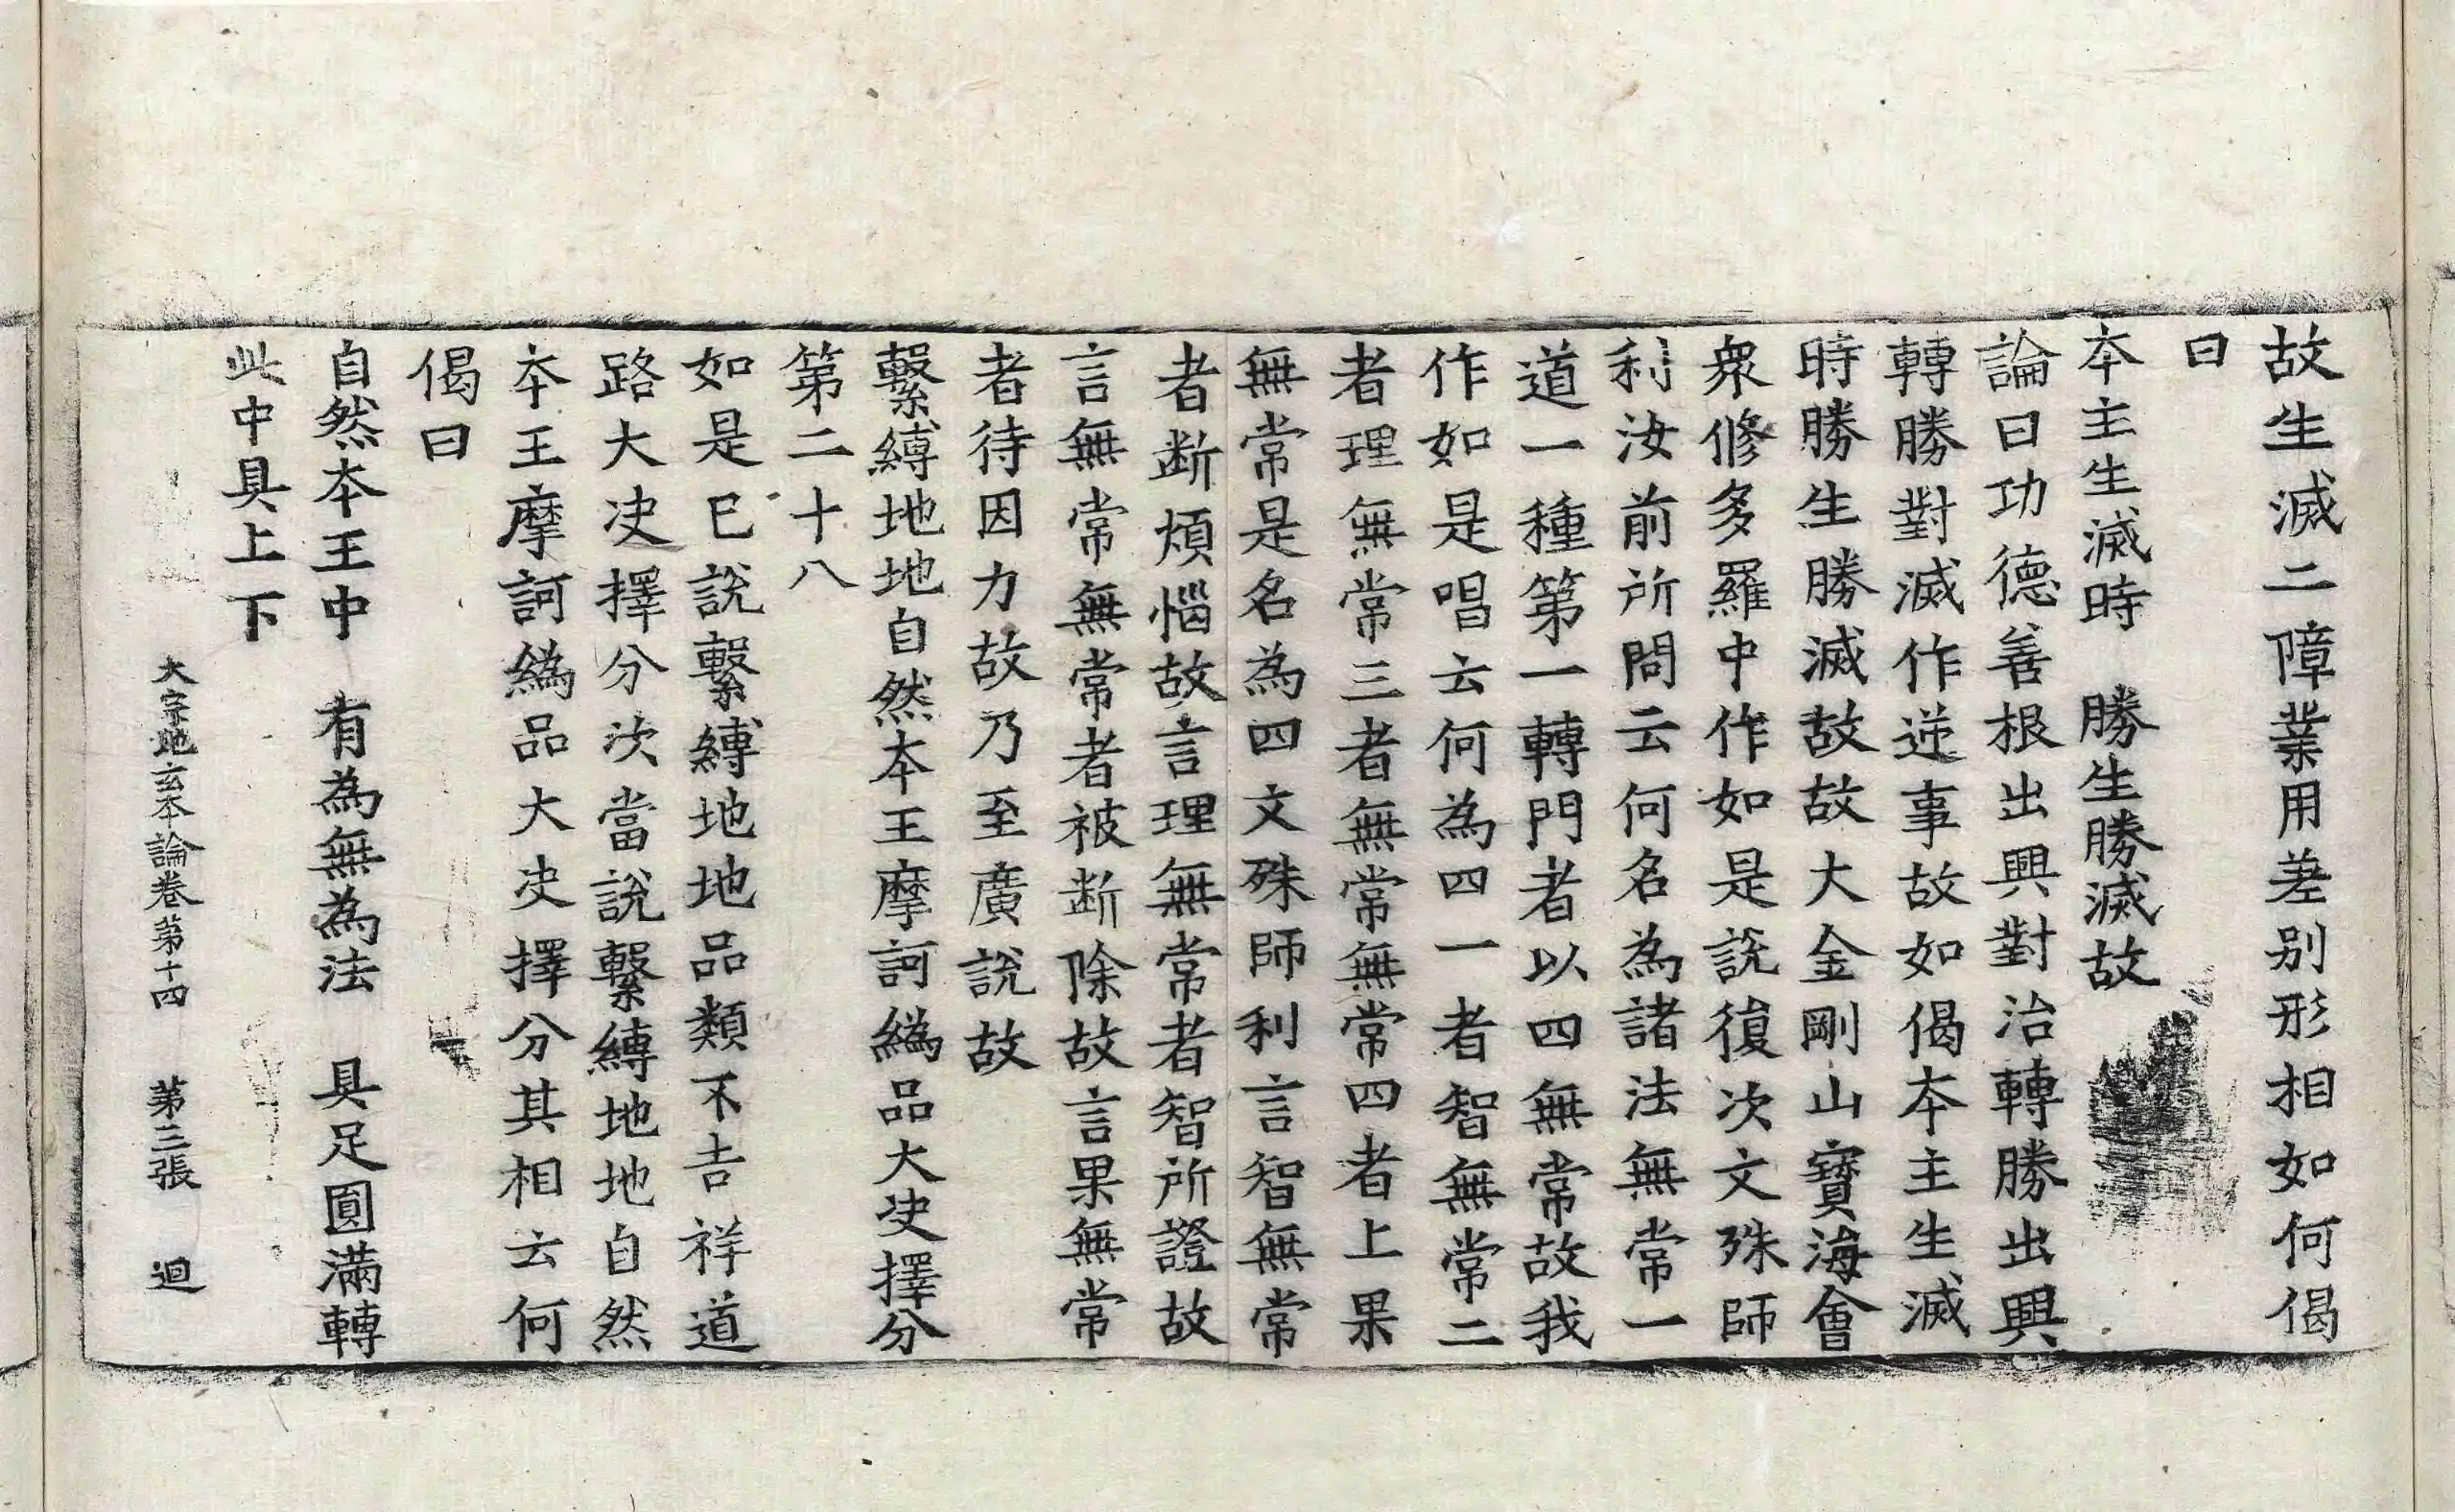 故生滅二障業用差别形相如何偈
曰
本主生滅時　勝生勝滅故
論曰功德善根出興對治轉勝出興
轉勝對滅作逆事故如偈本主生滅
時勝生勝滅故故大金剛山寶海會
衆修多羅中作如是說復次文殊師
利汝前所問云何名為諸法無常一
道一種第一轉門者以四無常故我
作如是唱云何為四一者智無常二
者理無常三者無常無常四者上果
無常是名為四文殊師利言智無常
者断煩惱故言理無常者智所證故
言無常無常者被断除故言果無常
者待因力故乃至廣說故
繫縛地地自然本王摩訶䌫品大决擇分
第二十八
如是已說繫縛地地品類不吉祥道
路大决擇分次當說繫縛地地自然
本王摩訶䌫品大决擇分其相云何
偈曰
自然本王中　有為無為法　具足圓滿轉
此中具上下
大宗地玄本論卷第十四　第三張　迴